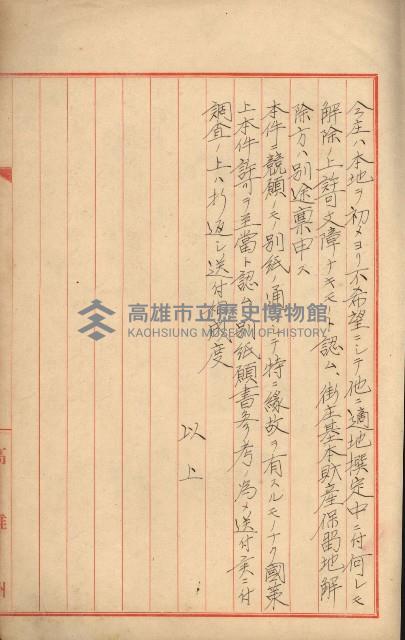 今庄ハ本地ヲ初メヨリ不希望ニシテ他ニ適地撰定中ニ付何レモ
解除ノ上許可支障ナキモノト認ム、街庄基本財産保留地解
除方ハ別途稟申ス
本件ニ競願ノモノ別紙ノ通ニシテ特ニ縁故ヲ有スルモノナク國策
上本件許可ヲ至當ト認ム別紙願書参考ノ為メ送付候ニ付
調査ノ上ハ折返シ送付相成度
以上
高雄市立歷史博物館
KAOHSIUNG MUSEUM OF HISTORY
高雄州